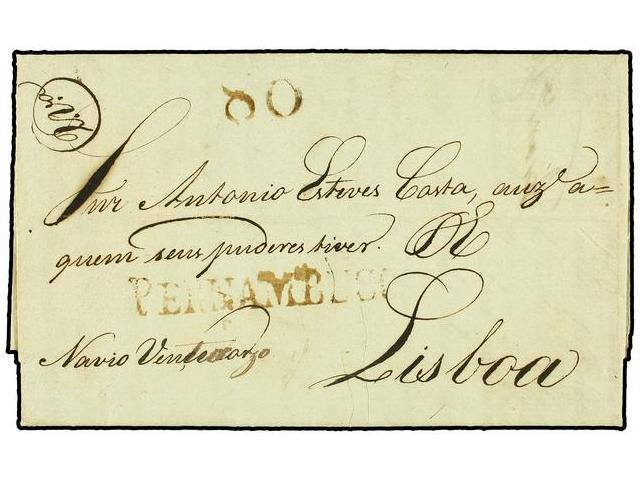 80
Snr Antonio Esteves Costa, auz.e a=
quem seus puderes tiver.
PERNAMBUCO
Navio Venturozo
Lisboa